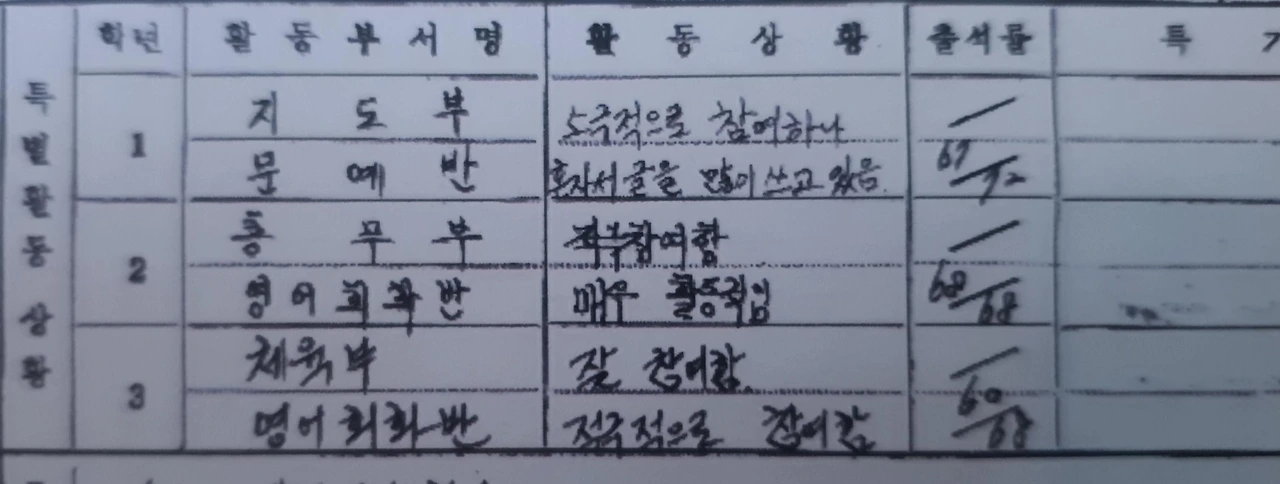 학년 활동부서명 활동상황 출석률 특
특별활동상황
1
지도부 소극적으로 참여하나 /
문예반 혼자서 글을 많이 쓰고 있음. 67/72
2
총무부 참여함 /
영어회화반 매우 활동적임 68/68
3
체육부 잘 참여함. /
영어회화반 적극적으로 참여함 60/68